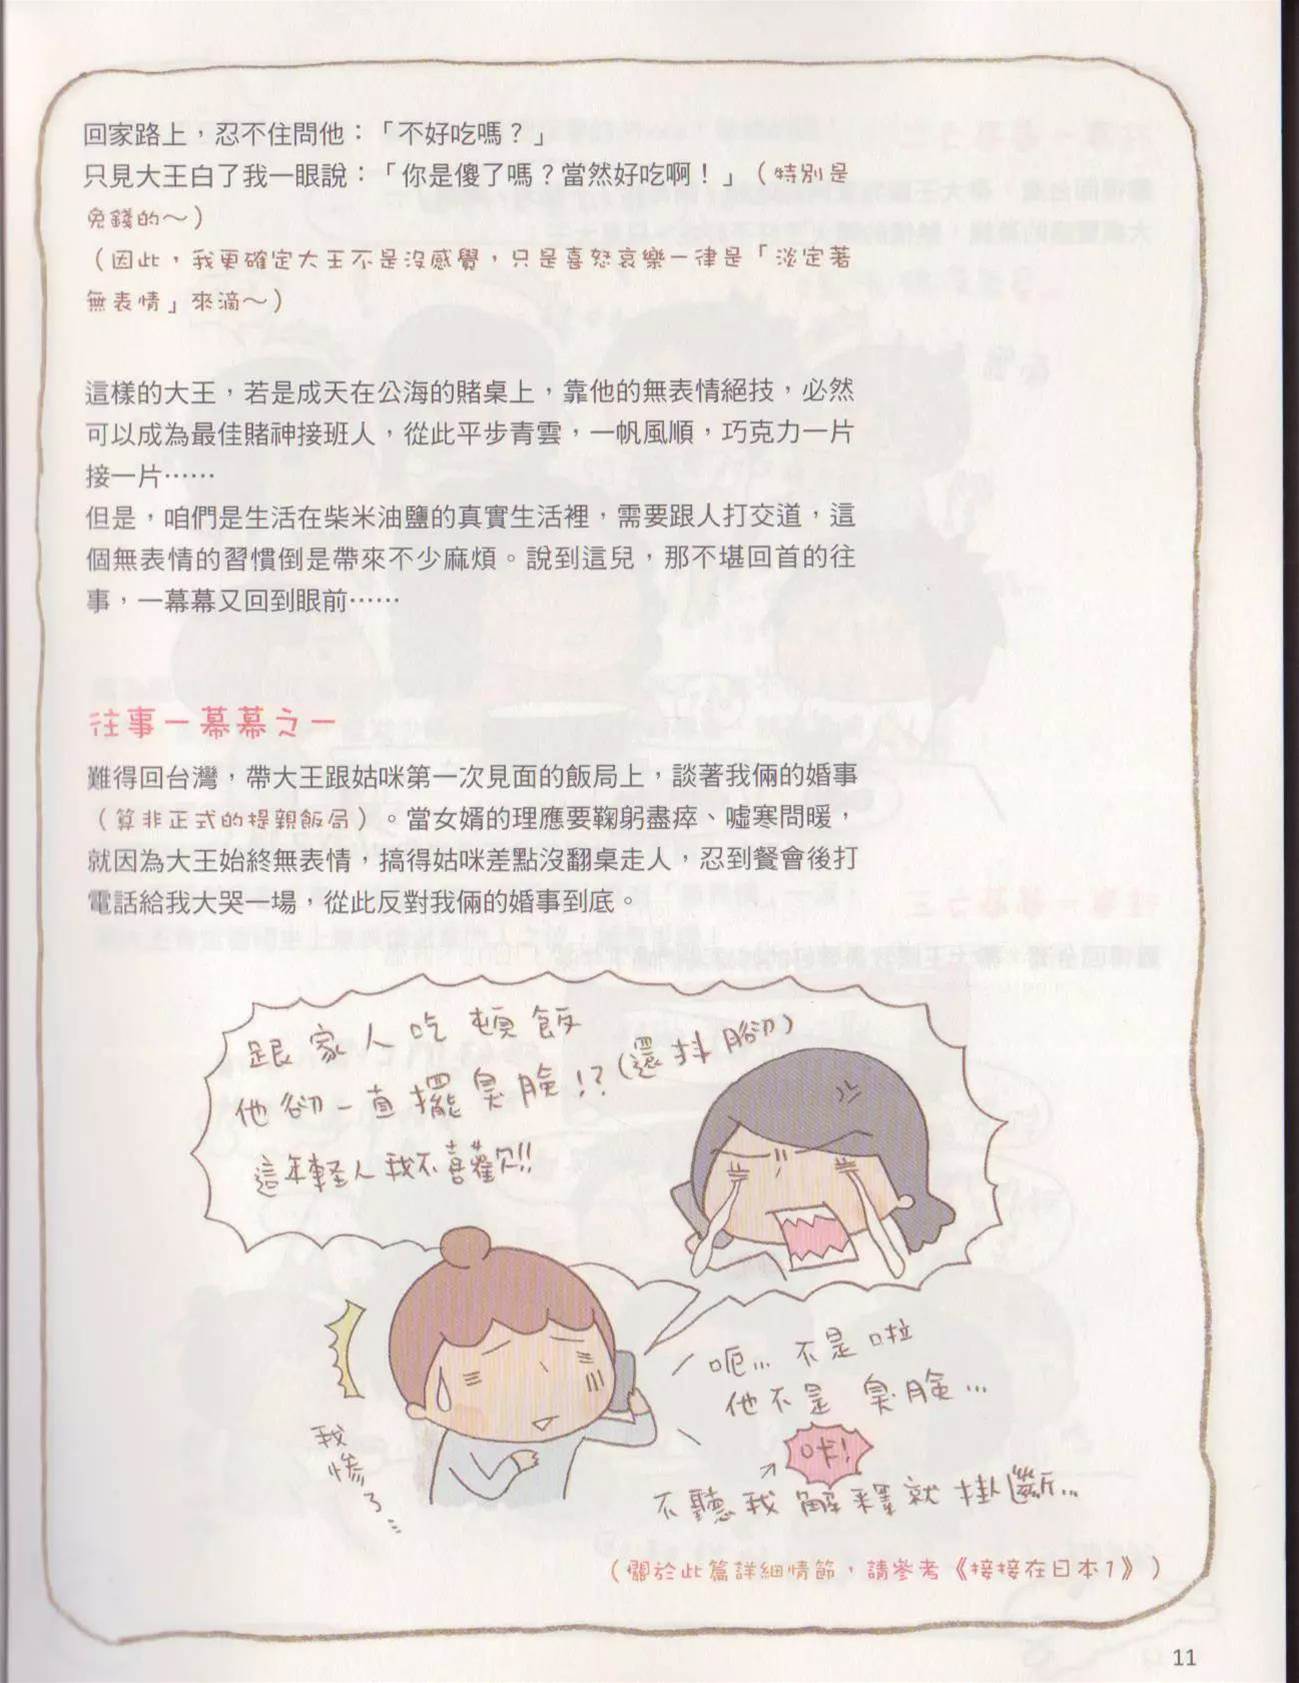 回家路上，忍不住問他：「不好吃嗎？」
只見大王白了我一眼說：「你是傻了嗎？當然好吃啊！」（特別是
免錢的～）
（因此，我更確定大王不是沒感覺，只是喜怒哀樂一律是「淡定著
無表情」來滴～）
這樣的大王，若是成天在公海的賭桌上，靠他的無表情絕技，必然
可以成為最佳賭神接班人，從此平步青雲，一帆風順，巧克力一片
接一片……
但是，咱們是生活在柴米油鹽的真實生活裡，需要跟人打交道，這
個無表情的習慣倒是帶來不少麻煩。說到這兒，那不堪回首的往
事，一幕幕又回到眼前……
往事一幕幕之一
難得回台灣，帶大王跟姑咪第一次見面的飯局上，談著我倆的婚事
（算非正式的提親飯局）。當女婿的理應要鞠躬盡瘁、噓寒問暖，
就因為大王始終無表情，搞得姑咪差點沒翻桌走人，忍到餐會後打
電話給我大哭一場，從此反對我倆的婚事到底。
跟家人吃頓飯
他卻一直擺臭臉！？（還抖腳）
這年輕人我不喜歡！！
呃… 不是啦
他不是臭臉…
咔！
不聽我解釋就掛斷…
我慘了…
（關於此篇詳細情節，請參考《接接在日本1》）
11